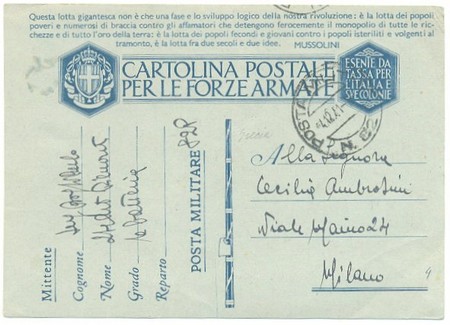 Questa lotta gigantesca non è che una fase e lo sviluppo logico della nostra rivoluzione: è la lotta dei popoli
poveri e numerosi di braccia contro gli affamatori che detengono ferocemente il monopolio di tutte le ric-
chezze e di tutto l'oro della terra: è la lotta dei popoli fecondi e giovani contro i popoli isteriliti e volgenti al
tramonto, è la lotta fra due secoli e due idee.
MUSSOLINI
CARTOLINA POSTALE
PER LE FORZE ARMATE
ESENTE DA
TASSA PER
L'ITALIA E
SUE COLONIE
POSTA MILITARE
N. 82
Alla Signora
Cecilia Ambrosini
Viale Maino 24
Milano
Mittente
Cognome
Nome
Grado
Reparto
POSTA MILITARE 82R